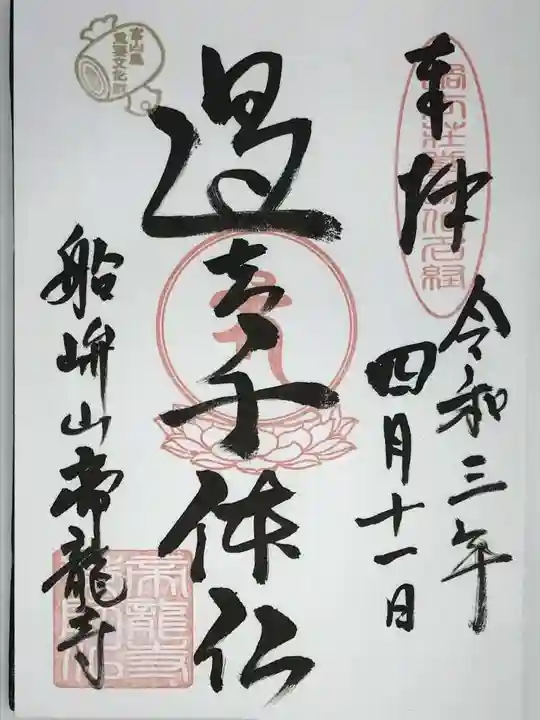 奉拝
令和三年
四月十一日
過去千体仏
船峅山帝龍寺
富山県
重要文化財
帝龍寺